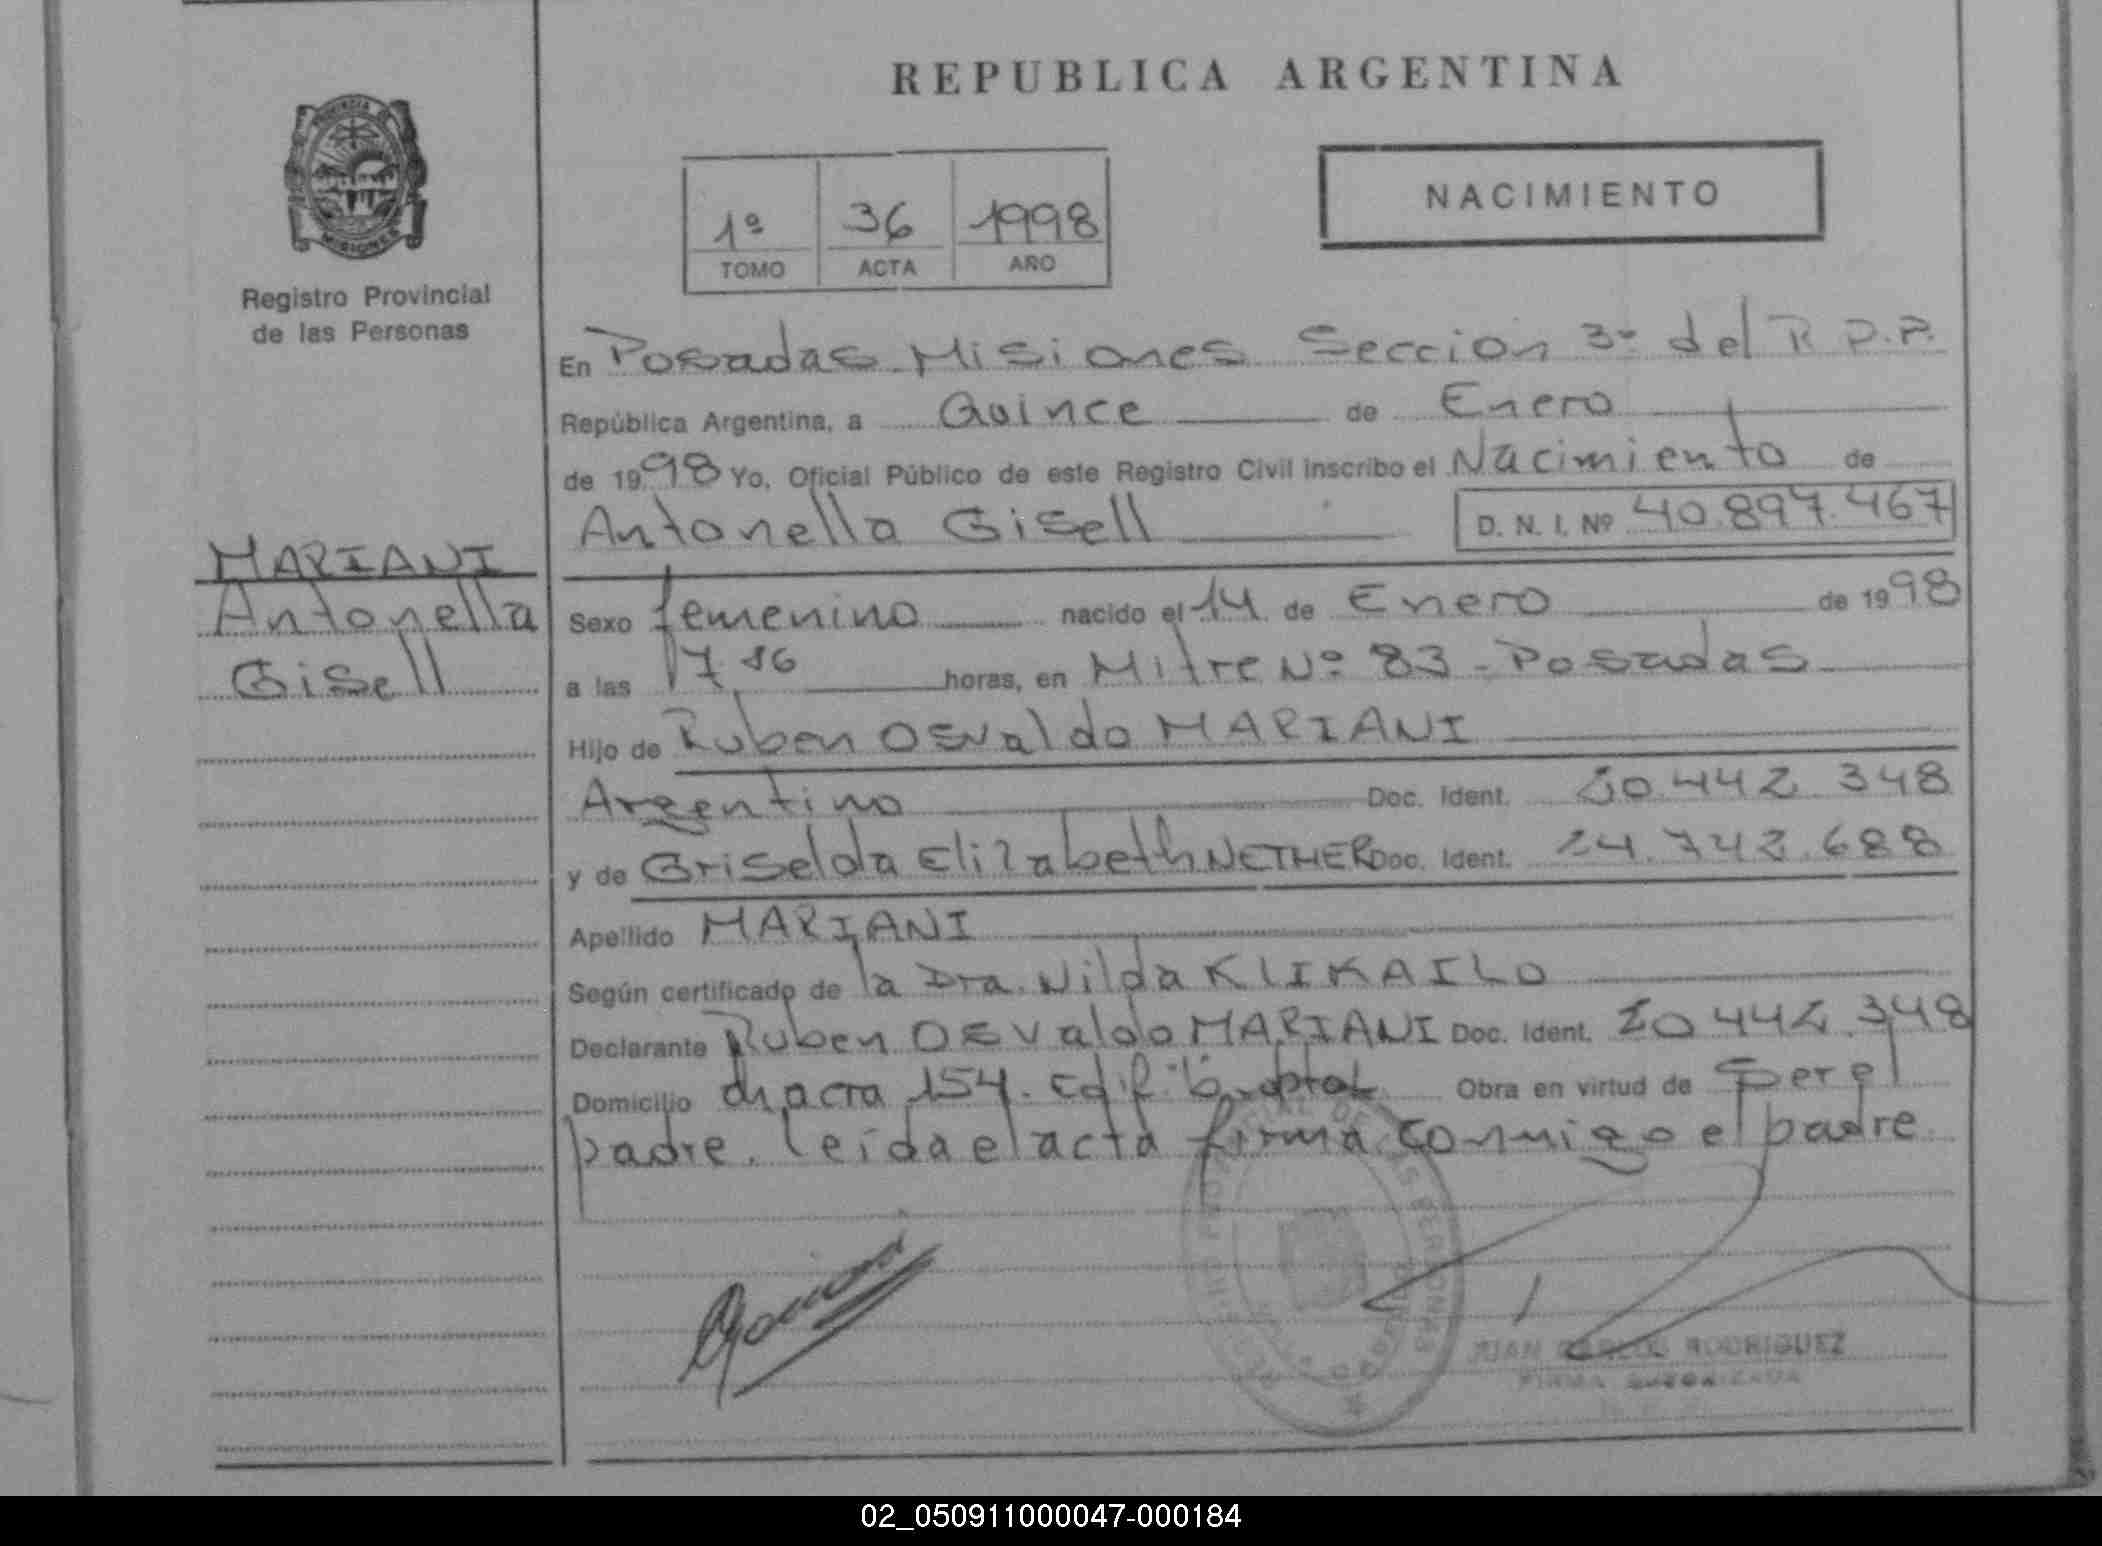 REPUBLICA ARGENTINA
PROVINCIA DE
MISIONES
Registro Provincial
de las Personas
1º 36 1998
TOMO ACTA AÑO
NACIMIENTO
En Posadas Misiones Seccion 3º del R.P.P.
República Argentina, a Quince de Enero
de 1998 Yo, Oficial Público de este Registro Civil inscribo el Nacimiento de
Antonella Gisell D. N. I. Nº 40.897.467
MARIANI
Antonella
Gisell
Sexo femenino nacido el 14 de Enero de 1998
a las 17 16 horas, en Mitre Nº 83 - Posadas
Hijo de Ruben Osvaldo MARIANI
Argentino Doc. Ident. 20.442.348
y de Griselda Elizabeth NETHER Doc. Ident. 24.742.688
Apellido MARIANI
Según certificado de la Dra. Nilda KLIKAILO
Declarante Ruben Osvaldo MARIANI Doc. Ident. 20.442.348
Domicilio chacra 154. Edif. Obra en virtud de Ser el
padre. leida el acta firma conmigo el padre
JUAN CARLOS RODRIGUEZ
FIRMA AUTORIZADA
02_050911000047-000184